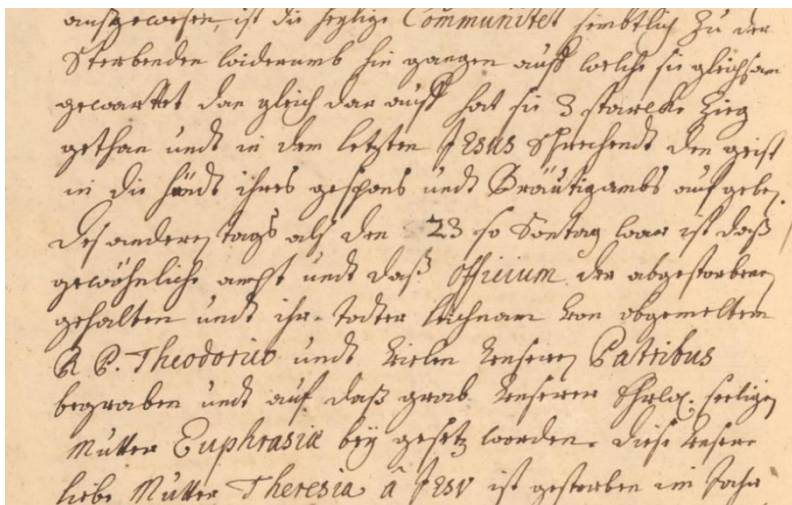 außgewesen, ist die heylige Communitet sembtlich zu der
Sterbenden widerumb hin gangen auff welche sie gleichsam
gewarttet dan gleich dar auff hat sie 3 starcke Zieg
gethan undt in dem letzten JEsus Sprechendt den geist
in die händt ihres gespons undt Bräutigambs auf geben.
Des anderen tags alß den 23 so Sontag war ist daß
gewöhnliche ambt undt daß officium der abgestorbenen
gehalten undt ihr Todter leichnam von obgemeltem
R P. Theodorico undt vielen unseren Patribus
begraben undt auf daß grab unserer Ehrw. seeligen
Mutter Euphrasiæ bey gesetz worden. diese unsere
liebe Mutter Theresia à JESV ist gestorben im Jahr